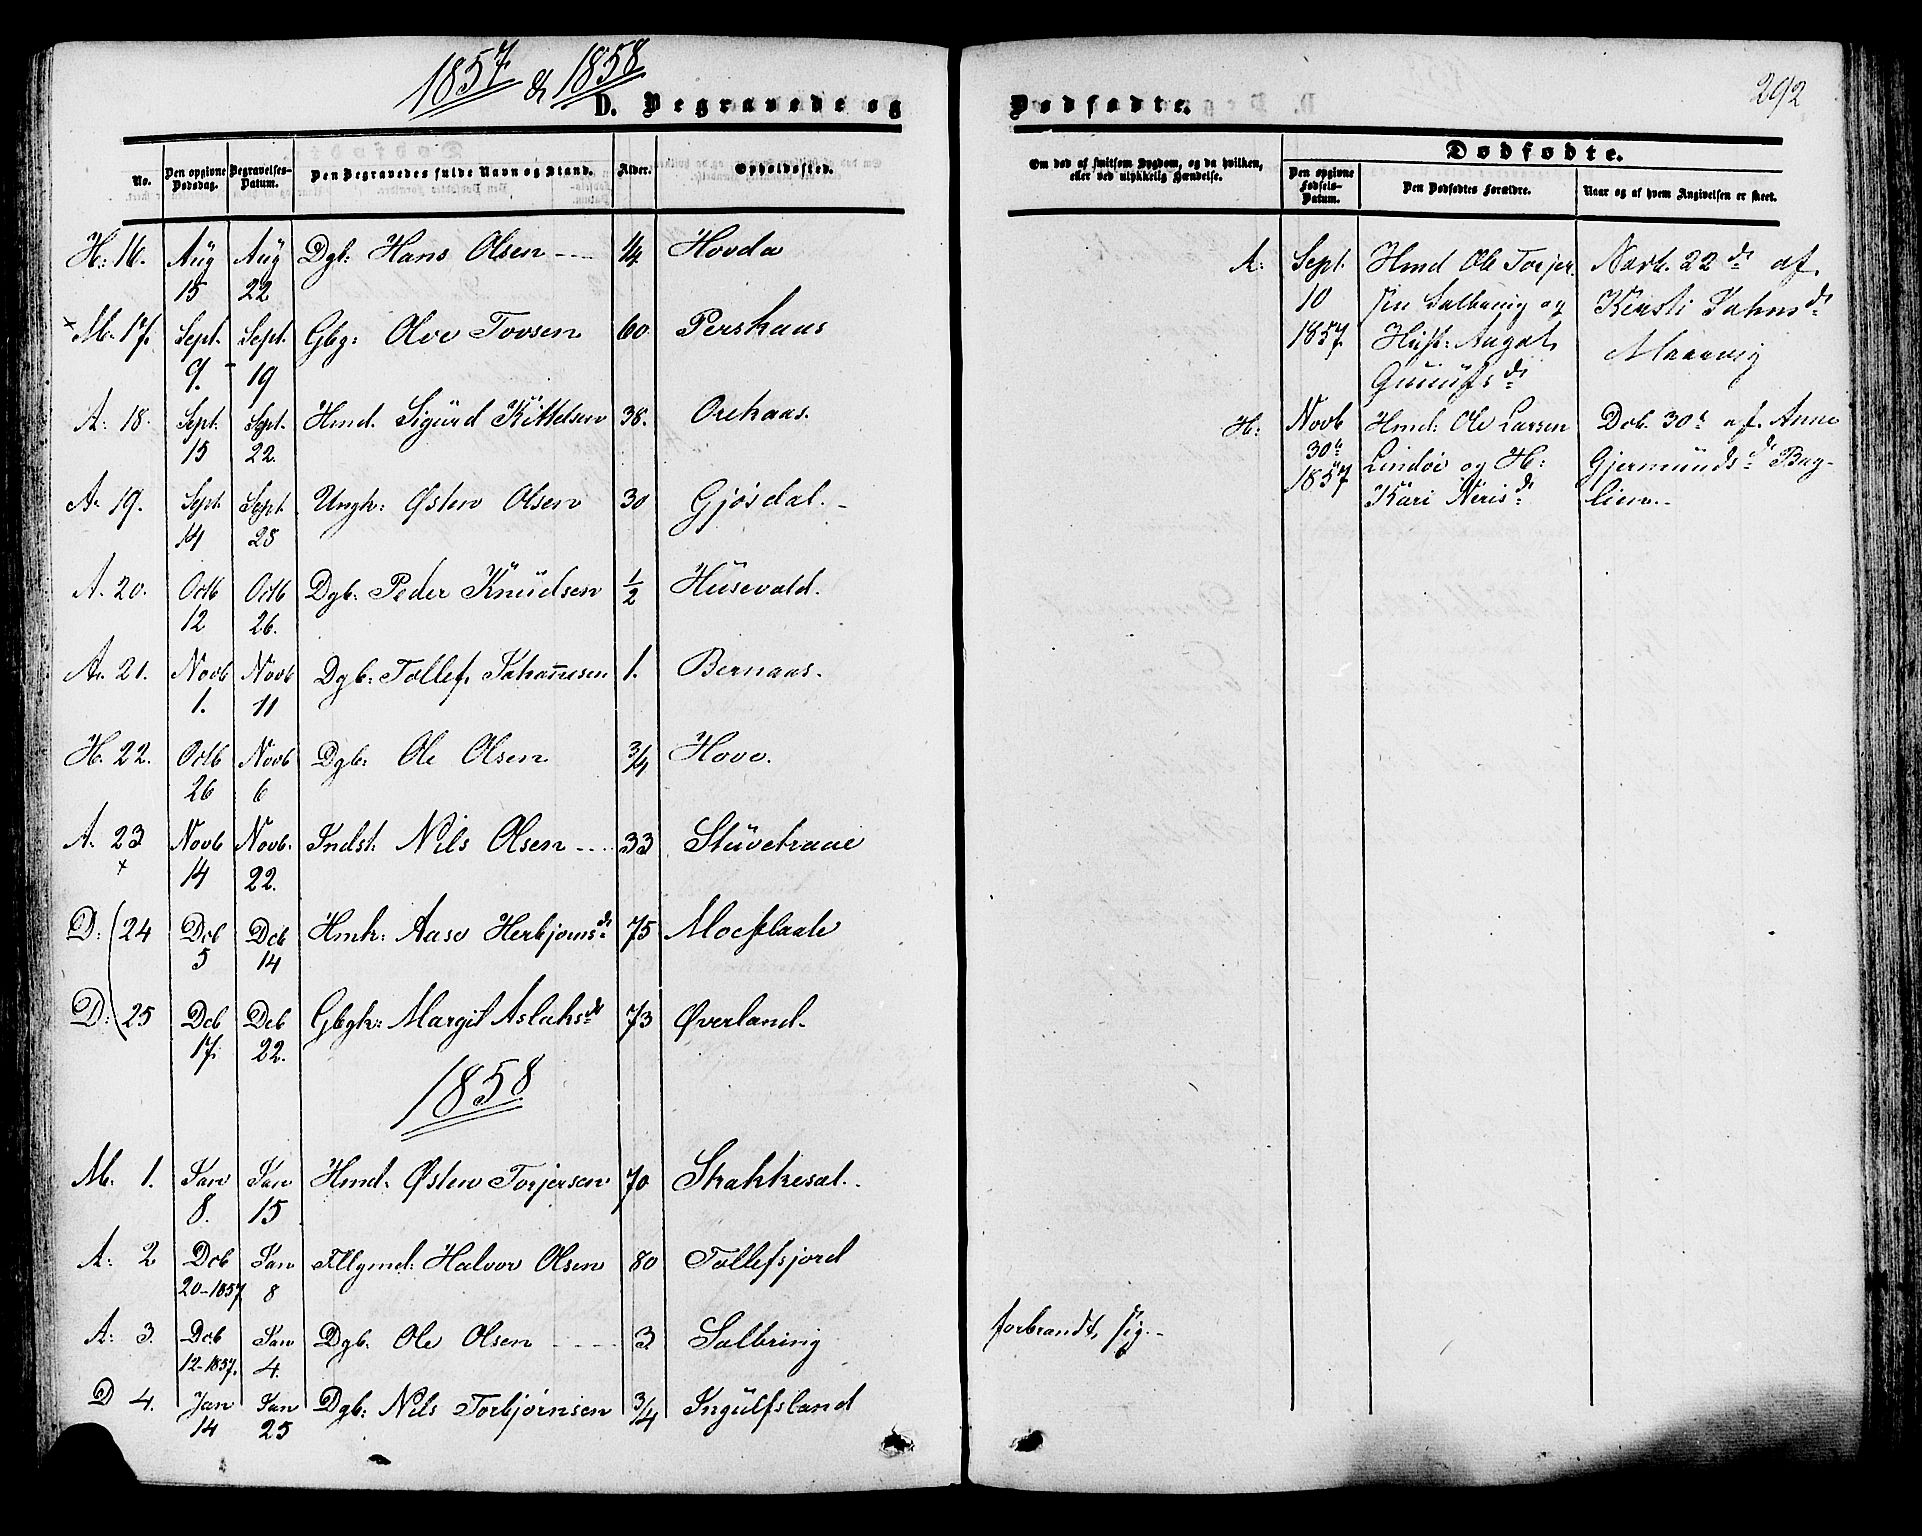 1857 & 1858
292
D. Begravede og
Dødfødte.
No.
Den opgivne Dødsdag.
Begravelses-Datum.
Den Begravedes fulde Navn og Stand.
Alder.
Opholdssted.
Om død af smitsom Sygdom, og da hvilken,
eller ved ulykkelig Hændelse.
Dødfødte.
Den opgivne Fødsels-Datum.
Den Dødfødtes Forældre.
Naar og af hvem Angivelsen er skeet.
H: 16. Aug 15 Aug 22 Dgb: Hans Olsen 1/4 Hovda
× M. 17. Sept. 9. Sept. 19 Gbg: Olve Tovsen 60 Pershuus
A: 18. Sept. 15 Sept. 22. Hmd. Sigurd Kittelsen 38. Orekaas.
A: 19. Sept. 14 Sept. 25 Ungk: Østen Olsen 30 Gjøsdal.
A. 20. Octb 12 Octb 26. Dgb: Peder Knudsen 1/2 Husevald.
A. 21. Novb 1. Novb 11 Dgb: Tollef Johannesen 1. Bernaas.
H. 22. Octb 26 Novb 6 Dgb: Ole Olsen 3/4 Hove.
A. 23 × Novb 14 Novb. 22. Indst. Nils Olsen 33 Stuvetraae
D: 24 Dcb 5 Dcb 14 Hmk: Aase Herbjørnsd: 75 Moeflaate
D: 25 Dcb 17. Dcb 22. Gbgk: Margit Aslaksd: 73 Øverland.
1858
M. 1. Jan 8. Jan 15 Hmd: Østen Torjersen 70 Skakkesat.
A: 2 Dcb 20-1857 Jan 8 Fllgmd: Halvor Olsen 80 Tollefsjord
A: 3. Dcb 12-1857. Jan 4. Dgb: Ole Olsen 3 Salbring forbrandt sig.
D 4. Jan 14 Jan 25 Dgb: Nils Torbjørnsen 3/4 Ingulfsland
A: Sept. Hmd Ole Torjer- Novb. 22de af
10 sen Salbring og Kersti Johnsd:
1857 Hust: Aagot
Gunulfsd:
H: Novb Hmd: Ole Larsen Dcb. 30. af. Anne
30 Lindøe og H: Gjermundsd: Bag-
1857 Kari Nerisd: lien.